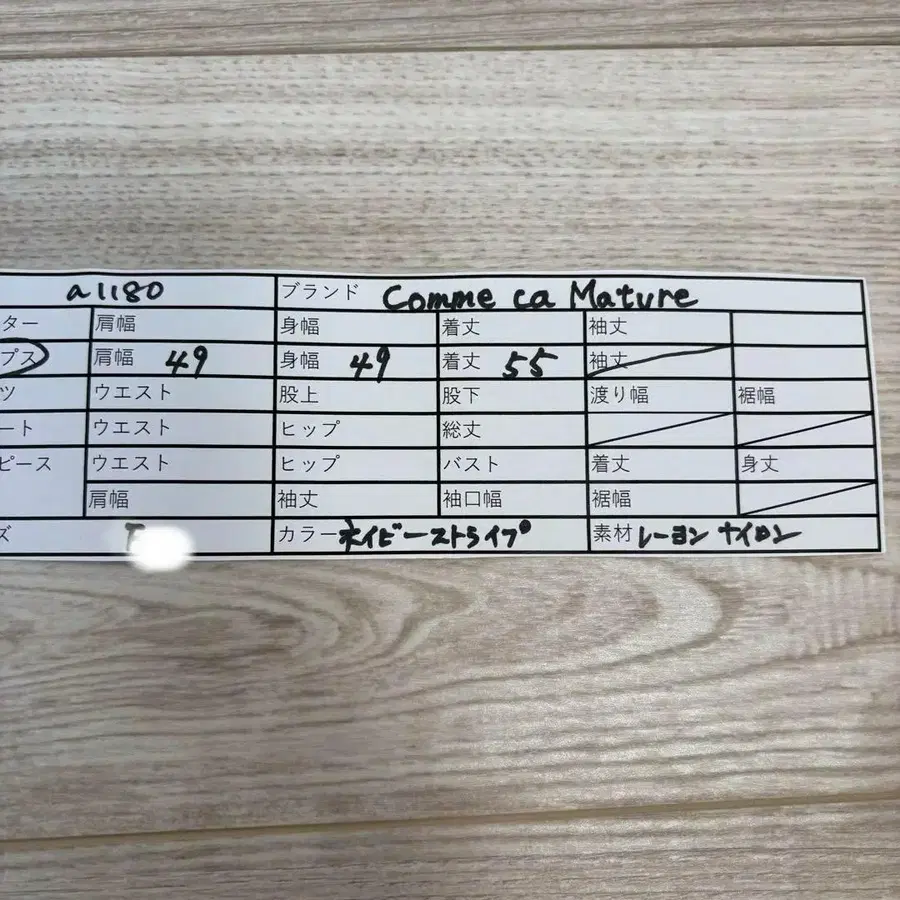 a1180 ブランド Comme ca Mature
ター 肩幅 身幅 着丈 袖丈
プス 肩幅 49 身幅 49 着丈 55 袖丈
ツ ウエスト 股上 股下 渡り幅 裾幅
ート ウエスト ヒップ 総丈
ピース ウエスト ヒップ バスト 着丈 身丈
肩幅 袖丈 袖口幅 裾幅
ズ カラー ネイビーストライプ 素材 レーヨン ナイロン